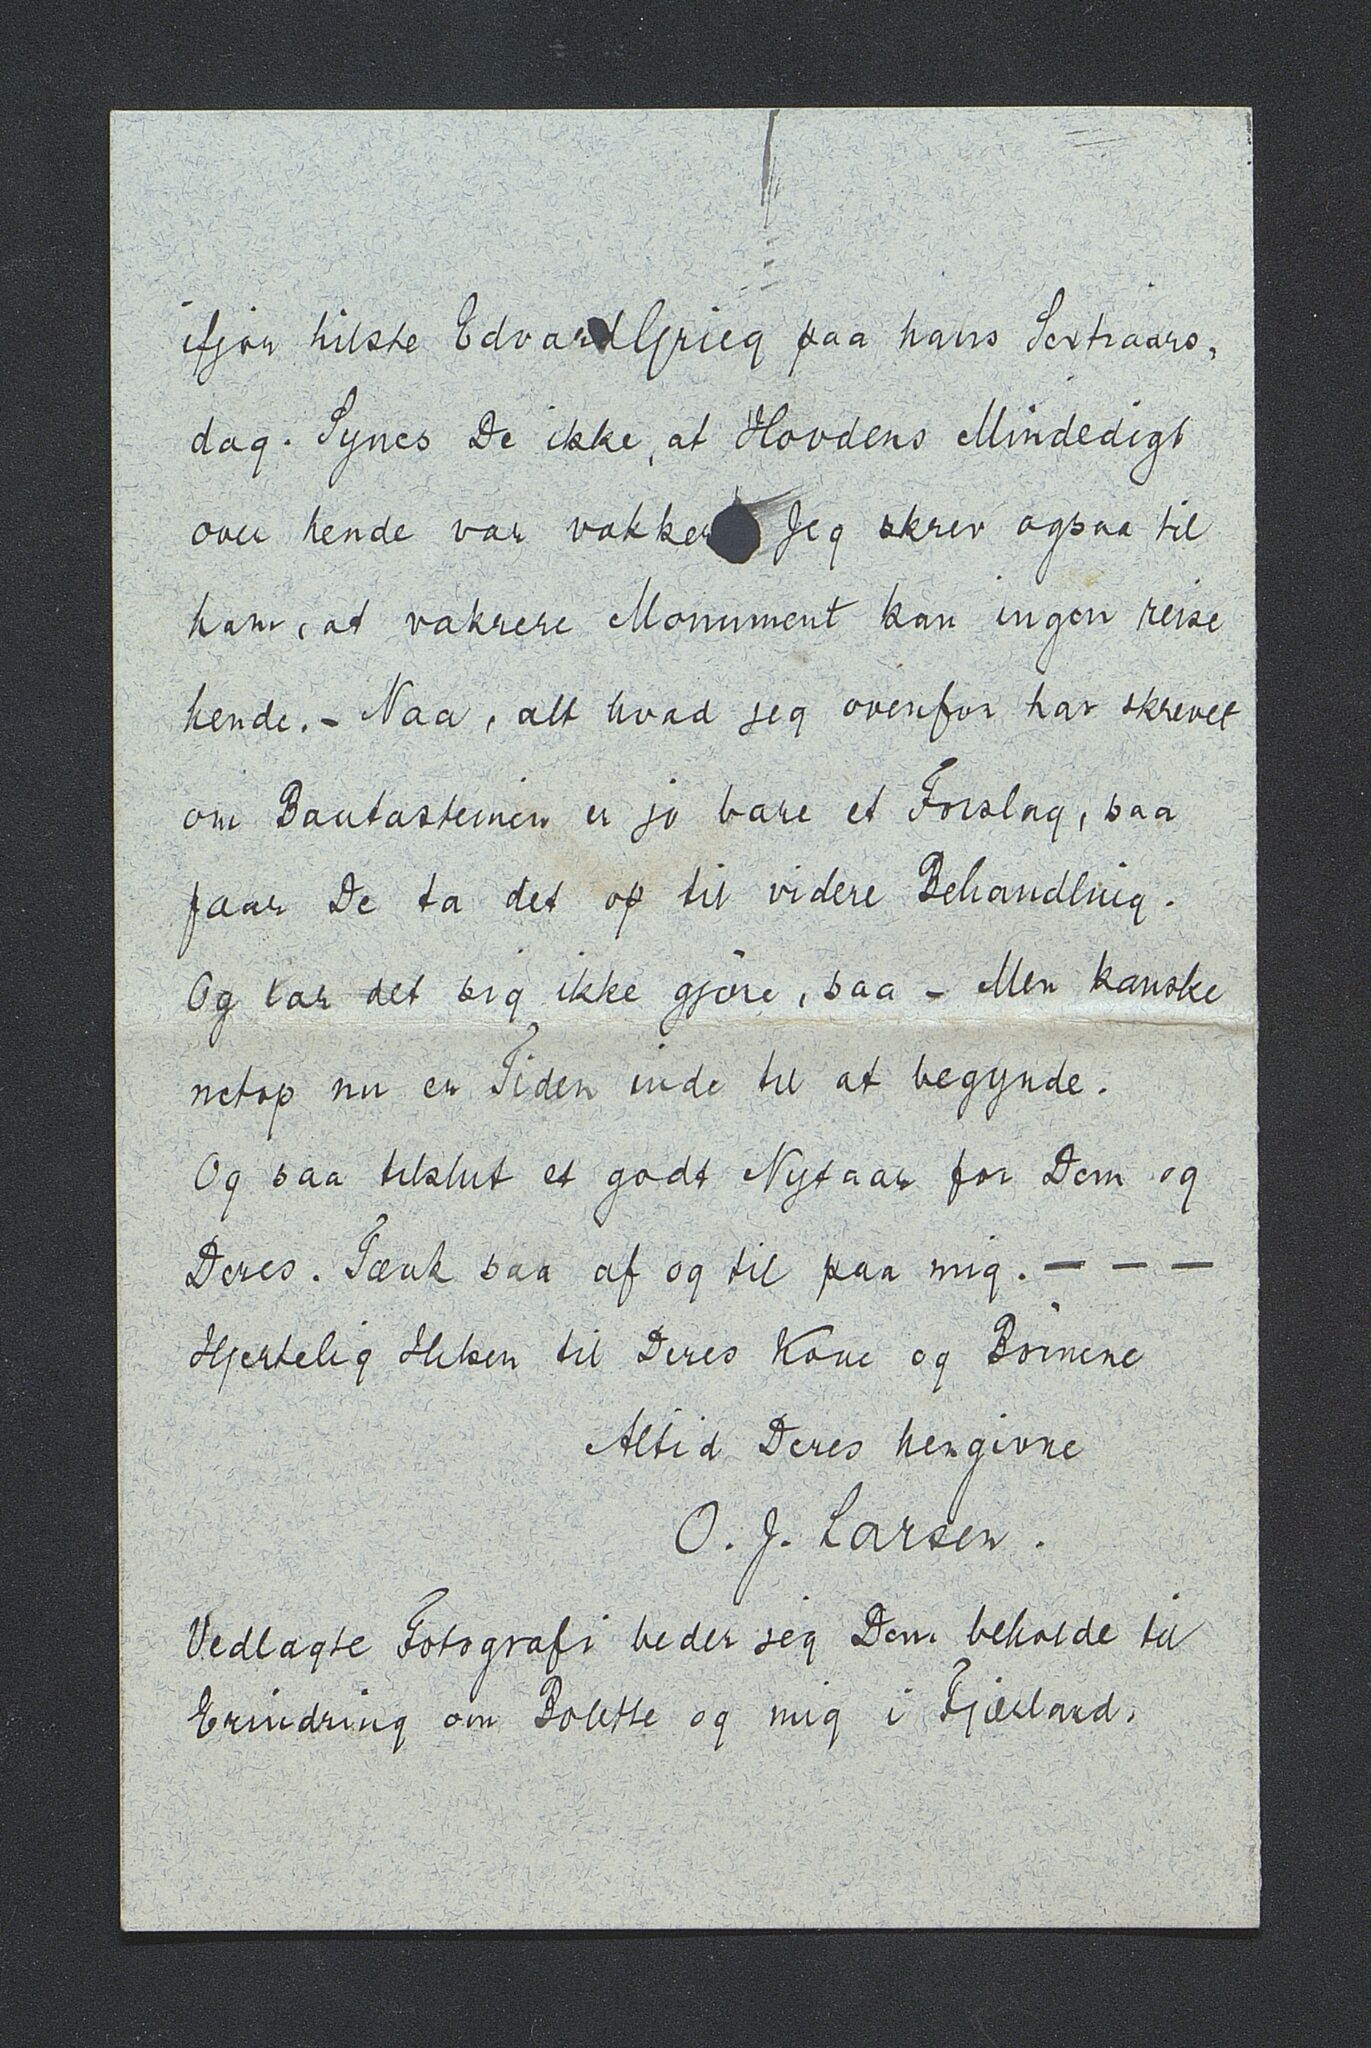 ifjor hilste Edvard Grieg paa hans Sextiaars-
dag. Synes De ikke, at Hovdens Mindedigt
over hende var vakker Jeg skrev ogsaa til
ham, at vakrere Monument kan ingen reise
hende. – Naa, alt hvad jeg ovenfor har skrevet
om Bautasteinen er jo bare et Forslag, saa
faar De ta det op til videre Behandling.
Og lar det sig ikke gjøre, saa – Men kanske
netop nu er Tiden inde til at begynde.
Og saa tilslut et godt Nytaar for Dem og
Deres. Tænk saa af og til paa mig. – – –
Hjertelig Hilsen til Deres Kone og Børnene
Altid Deres hengivne
O. J. Larsen.
Vedlagte Fotografi beder jeg Dem beholde til
Erindring om Bolette og mig i Fjærland.